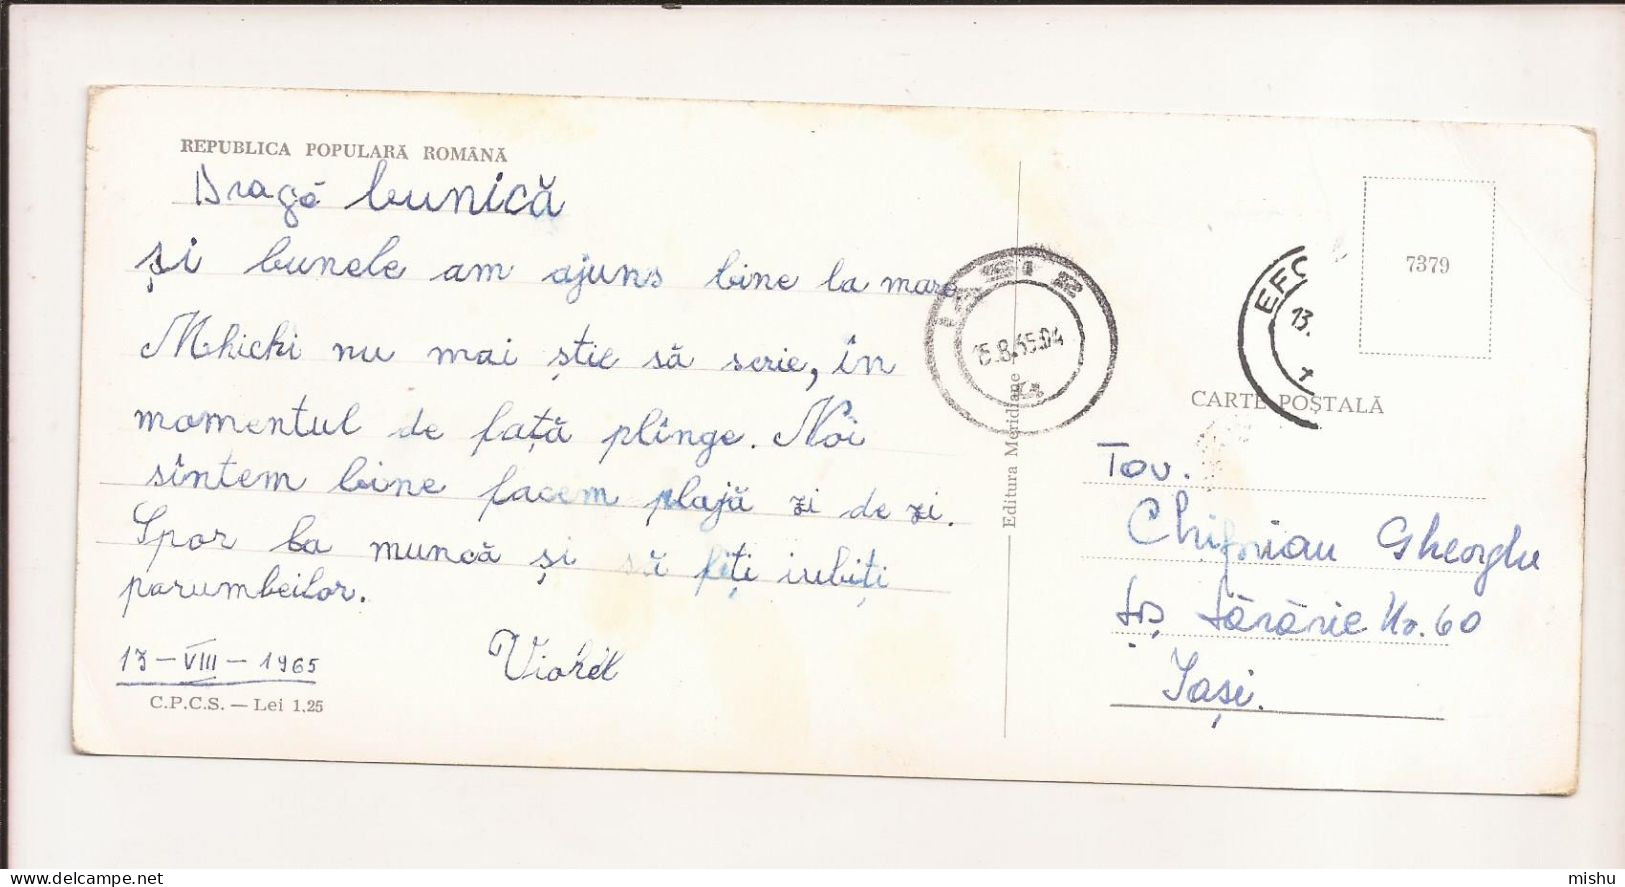 REPUBLICA POPULARĂ ROMÂNĂ
Dragă bunică
și bunele am ajuns bine la mare
Mhichi nu mai știe să scrie, în
momentul de față plînge. Noi
sîntem bine facem plajă zi de zi.
Spor la muncă și să fiți iubiți
porumbeilor.
13-VIII-1965
Viorel
C.P.C.S. — Lei 1,25
Editura Meridiane
15.8.65.04
EFO
13.
7379
CARTE POȘTALĂ
Tov.
Gheorghe
Tărărie Nr. 60
Iași.
mishu